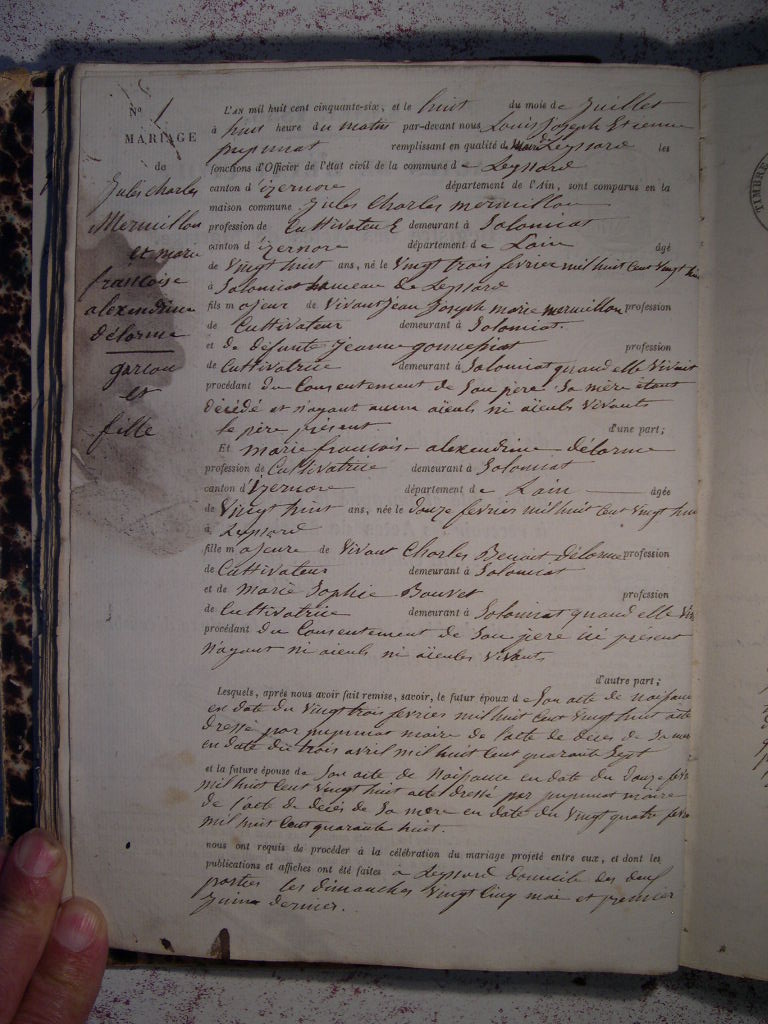 N° 1
MARIAGE
de
Jules Charles
Mermillon
et marie
francoise
alexendrine
délorme
garcon
et
fille
L'AN mil huit cent cinquante-six, et le huit du mois de Juillet
à huit heure du matin par-devant nous Louis Joseph Etienne
remplissant en qualité de Maire de Leyssard les
fonctions d'Officier de l'état civil de la commune de Leyssard
canton d'izernore département de l'Ain, sont comparus en la
maison commune Jules Charles mermillon
profession de Cultivateur demeurant à Solomiat
canton d'izernore département de Lain âgé
de Vingt huit ans, né le Vingt trois fevrier mil huit cent Vingt hui
à Solomiat hameau de Leyssard
fils majeur de Vivant Jean Joseph marie mermillon profession
de Cultivateur demeurant à Solomiat.
et de défunte Jeanne profession
de Cultivatrice demeurant à Solomiat quand elle Vivait
procédant du Consentement de Son père Sa mère étant
décédé et n'ayant aucun aïeuls ni aïeules vivants
le père présent d'une part;
Et marie francoise alexendrine délorme
profession de Cultivatrice demeurant à Solomiat
canton d'izernore département de Lain âgée
de Vingt huit ans, née le douze fevrier mil huit Cent Vingt hui
à Leyssard
fille majeure de Vivant Charles Benoit délorme profession
de Cultivateur demeurant à Solomiat
et de marie Sophie Bouvet profession
de Cultivatrice demeurant à Solomiat quand elle Viv
procédant du Consentement de Son père ici présent
n'ayant ni aïeuls ni aïeules vivants
d'autre part;
Lesquels, après nous avoir fait remise, savoir, le futur époux de Son acte de naissance
en date du Vingt trois fevrier mil huit Cent Vingt huit acte
dressé par maire de l'acte de décès de Sa mere
en date du trois avril mil huit Cent quarante Sept
et la future épouse de Son acte de Naissance en date du douze fevr
mil huit Cent Vingt huit acte dressé par maire
de l'acte de décès de Sa mere en date du Vingt quatre fevr
mil huit Cent quarante huit.
nous ont requis de procéder à la célébration du mariage projeté entre eux, et dont les
publications et affiches ont été faites a Leyssard domicile des deux
parties les dimanches Vingt Cinq mai et premier
Juin dernier.
TIMBRE